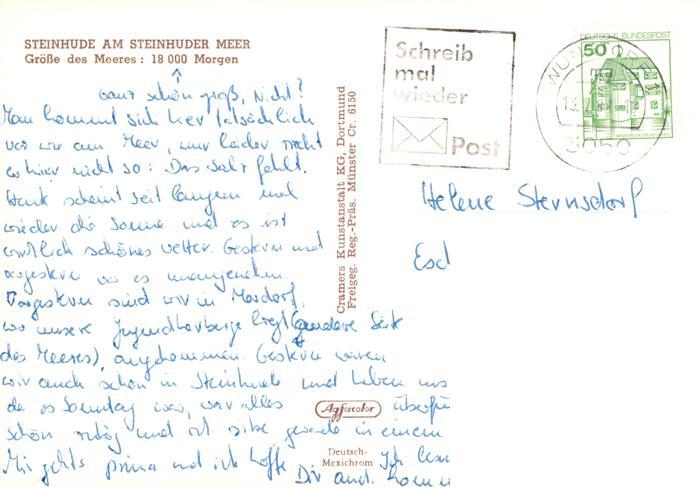 STEINHUDE AM STEINHUDER MEER
Größe des Meeres : 18 000 Morgen
Ganz schön groß, nicht?
Man kommt sich hier tatsächlich
vor wie am Meer, nur leider riecht
es hier nicht so: Das Salz fehlt.
Heute scheint seit langem mal
wieder die Sonne und es ist
wirklich schönes Wetter. Gestern und
vorgestern war es unangenehm.
Vorgestern sind wir in Mardorf,
wo unsere Jugendherberge liegt (andere Seite
des Meeres), angekommen. Gestern waren
wir auch schon in Steinhude und haben uns
da es Sonntag war, war alles überfü
schön ruhig und ich sitze gerade in einem
Mir gehts prima und ich hoffe Dir auch.
Ich
Cramers Kunstanstalt KG, Dortmund
Freigeg. Reg.-Präs. Münster Cr. 6150
Agfacolor
Deutsch-
Mexichrom
Schreib
mal
wieder
Post
DEUTSCHE BUNDESPOST
50
WUNSTORF
3050
Helene Sternsdorf